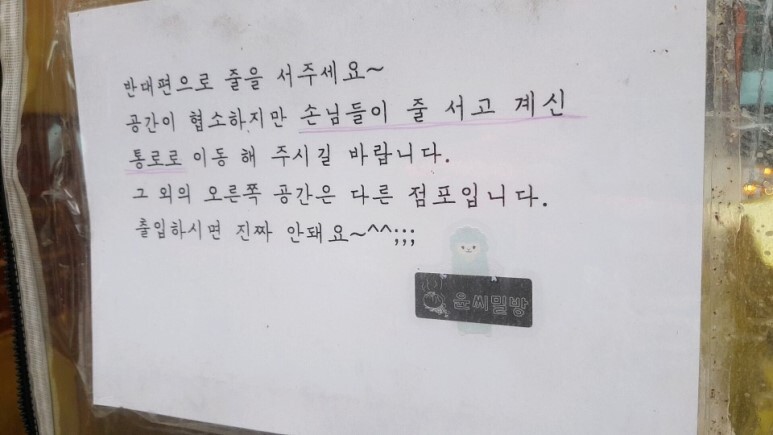 반대편으로 줄을 서주세요~
공간이 협소하지만 손님들이 줄 서고 계신
통로로 이동 해 주시길 바랍니다.
그 외의 오른쪽 공간은 다른 점포입니다.
출입하시면 진짜 안돼요~^^;;;
윤씨밀방